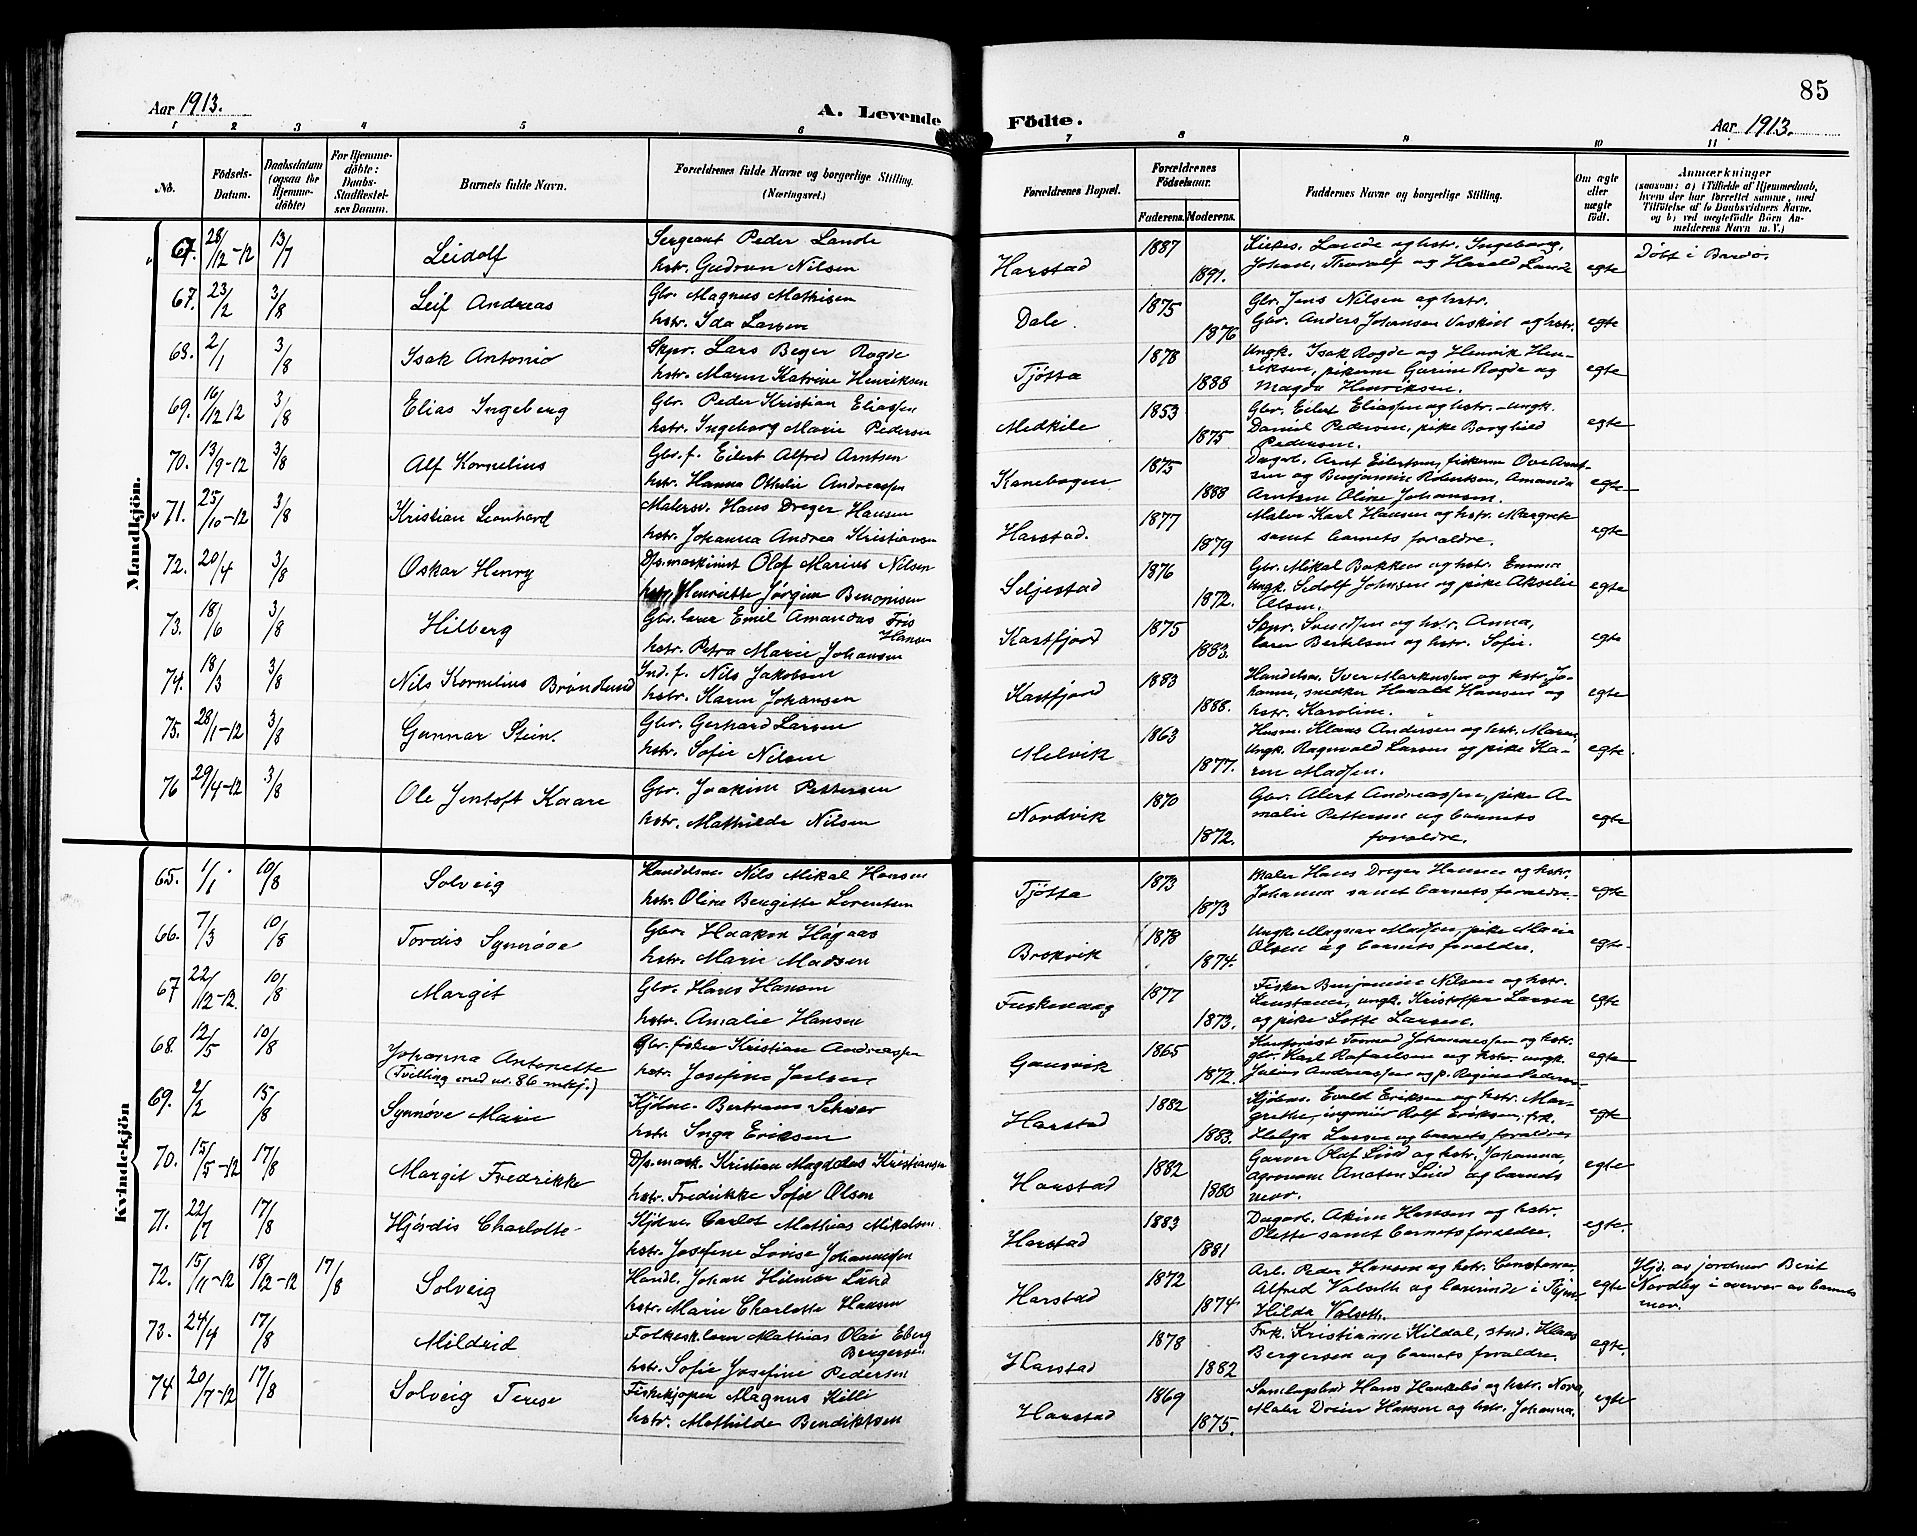 85
Aar 1913.
A. Levende
Födte.
Aar 1913.
1 2 3 4 5 6 7 8 9 10 11
No.
Födsels-Datum.
Daabsdatum (ogsaa for Hjemme-döbte)
For Hjemme-döbte: Daabs-Stadfæstel-ses Datum.
Barnets fulde Navn.
Forældrenes fulde Navne og borgerlige Stilling. (Næringsvei.)
Forældrenes Bopæl.
Forældrenes Födselsaar.
Faderens. Moderens.
Faddernes Navne og borgerlige Stilling.
Om ægte eller uægte födt.
Anmærkninger
(saasom: a) i Tilfælde af Hjemmedaab,
hvem der har forrettet samme, med
Tilföielse af to Daabsvidners Navne,
og b) ved uægtefödte Börn An-
melderens Navn m. V.)
Mandkjön.
67. 28/12-12 13/7 Leidolf Sergeant Peder Lande Harstad 1887 Johan, Thoralf og Harald Lande egte Döbt i Bardo.
hstr. Gudrun Nilsen 1891.
67. 23/2 3/8 Leif Andreas Gbr. Magnus Mathisen Dale. 1875 Gbr. Jens Nilsen og hstr. egte
hstr. Ida Larsen 1876 Gbr. Anders Johansen Vaskind og hstr.
68. 2/1 3/8 Isak Antonio Skpr. Lars Beyer Rogde Tjötta 1878 Ungk. Isak Rogde og Henrik Hen- egte
hstr. Maren Katrine Henriksen 1888 riksen, pikerne Garine Rogde og
Magda Henriksen.
69. 16/12 12 3/8 Elias Ingeberg Gbr. Peder Kristian Eliassen Medkile 1853 Gbr. Eilert Eliassen og hstr. - ungk. egte
hstr. Ingeborg Marie Pedersen 1875 Daniel Pedersen, pike Borghild
Pedersen.
70. 13/9-12 3/8 Alf Kornelius Gbr. f. Eilert Alfred Arntsen Kanebogen 1875 Dagarb. Arnt Eilertsen, fiskerne Ove Arnt- egte
hstr. Hanna Othelie Andreassen 1888 sen og Benjamine Robertsen, Amanda
Arntsen Oline Johansen.
71. 25/10-12 3/8 Kristian Leonhard Malersv. Hans Dreyer Hansen Harstad. 1877 Maler Karl Hansen og hstr. Margrete egte
hstr. Johanna Andrea Kristiansen 1879 samt barnets forældre.
72. 20/4 3/8 Oskar Henry D/s. maskinist Olaf Marius Nilsen Seljestad 1876 Gbr. Mikal Bakken og hstr. Emma egte
hstr. Henriette Jörgine Benonisen 1872. Ungk. Sidolf Johnsen og pike Akselie
Olsen.
73. 18/6 3/8 Hilberg Gbr. lærer Emil Amandus Friis Hansen Kastfjord 1875 Skpr. Svendsen og hstr. Anna, egte
hstr. Petra Marie Johansen 1883. lærer Bertelsen og hstr. Sofie.
74. 18/3 3/8 Nils Kornelius Bröndlund Ind. f. Nils Jakobsen Kastfjord 1883 Handelsm. Iver Markussen og hstr. Jo- egte
hstr. Karen Johansen 1888. hanna, snedker Harald Hansen og
hstr. Karoline.
75. 28/1-12 3/8 Gunnar Stein. Gbr. Gerhard Larsen Melvik 1863 Husm. Klaus Andersen og hstr. Maren, egte.
hstr. Sofie Nilsen 1877. Ungk. Ragnvald Larsen og pike Ka-
ren Madsen.
76 29/4-12 3/8 Ole Jentoft Kaare Gbr. Joakim Pettersen Nordvik 1870 Gbr. Alert Andreassen, pike A- egte
hstr. Mathilde Nilsen 1872. malie Pettersen og barnets
forældre.
Kvindekjön
65. 1/1 10/8 Solveig Handelsm. Nils Mikal Hansen Tjötta 1873 Maler Hans Dreyer Hansen og hstr. egte
hstr. Oline Bergitte Lorentsen 1873 Johanna samt barnets forældre.
66. 7/3 10/8 Tordis Synnöve Gbr. Haakon Hågaas Brokvik 1878 Ungk. Magnar Madsen, pike Marie egte.
hstr. Marie Madsen 1874. Olsen og barnets forældre.
67 22/12-12. 10/8 Margit Gbr. Hans Hansen 1877 Fisker Benjamine Nilsen og hstr. egte
hstr. Amalie Hansen 1873. Konstance, ungk. Kristoffer Larsen
og pike Lotte Larsen.
68. 12/5 10/8 Johanna Antonette Gbr. fisker Kristian Andreassen Gansvik 1865 Tormod Johannessen og hstr. egte
(Tvilling med nr. 86 mkj.) hstr. Josefine Joelsen 1872. gbr. Karl Rafaelsen og hstr. ungk.
Julius Andreassen og p. Regine Pedersen
69. 2/2 15/8 Synnöve Marie Kjöbm. Bertrans Harstad 1882 Kjöbm. Evald Eriksen og hstr. Mar- egte
hstr. Inga Eriksen 1883. grethe, ingeniör Rolf Eriksen, frk.
Helga Larsen og barnets forældre
70. 15/5-12 17/8 Margit Fredrikke D/s. mask. Kristian Magdalus Kristiansen Harstad 1882 Garver Olaf Lind og hstr. Johanna, egte
hstr. Fredrikke Sofie Olsen 1880 agronom Anaton Lind og barnets
mor.
71. 22/7 17/8 Hjördis Charlotte Carlot Mathias Mikalsen. Harstad 1883 Dagarb. Akim Hansen og hstr. egte.
hstr. Josefine Lovise Johannessen 1881 Olette samt barnets forældre.
72. 15/11-12 18/12-12 17/8 Solveig Handl. Johan Hilmar Lund Harstad 1872 Arb. Peder Hansen og hstr. Constanse, egte Hjd. av jordmor Berit
hstr. Marie Charlotte Hansen 1874 Alfred Valseth og lærerinde Nordby i overvær av barnets
Hilda Valseth. mor.
73. 24/4 17/8 Mildrid Folkesk. lærer Mathias Olai Eberg Bergersen Harstad 1878 Frk. Kristianne Kildal, stud. Klaus egte.
hstr. Sofie Josefine Pedersen 1882 Bergersen og barnets forældre.
74 20/7-12 17/8 Solveig Terese Fiskekjöper Magnus Killi Harstad 1869 Hans Haukebö og hstr. Nora, egte
hstr. Mathilde Bendiktsen 1875. Maler Dreier Hansen og hstr. Johanna.